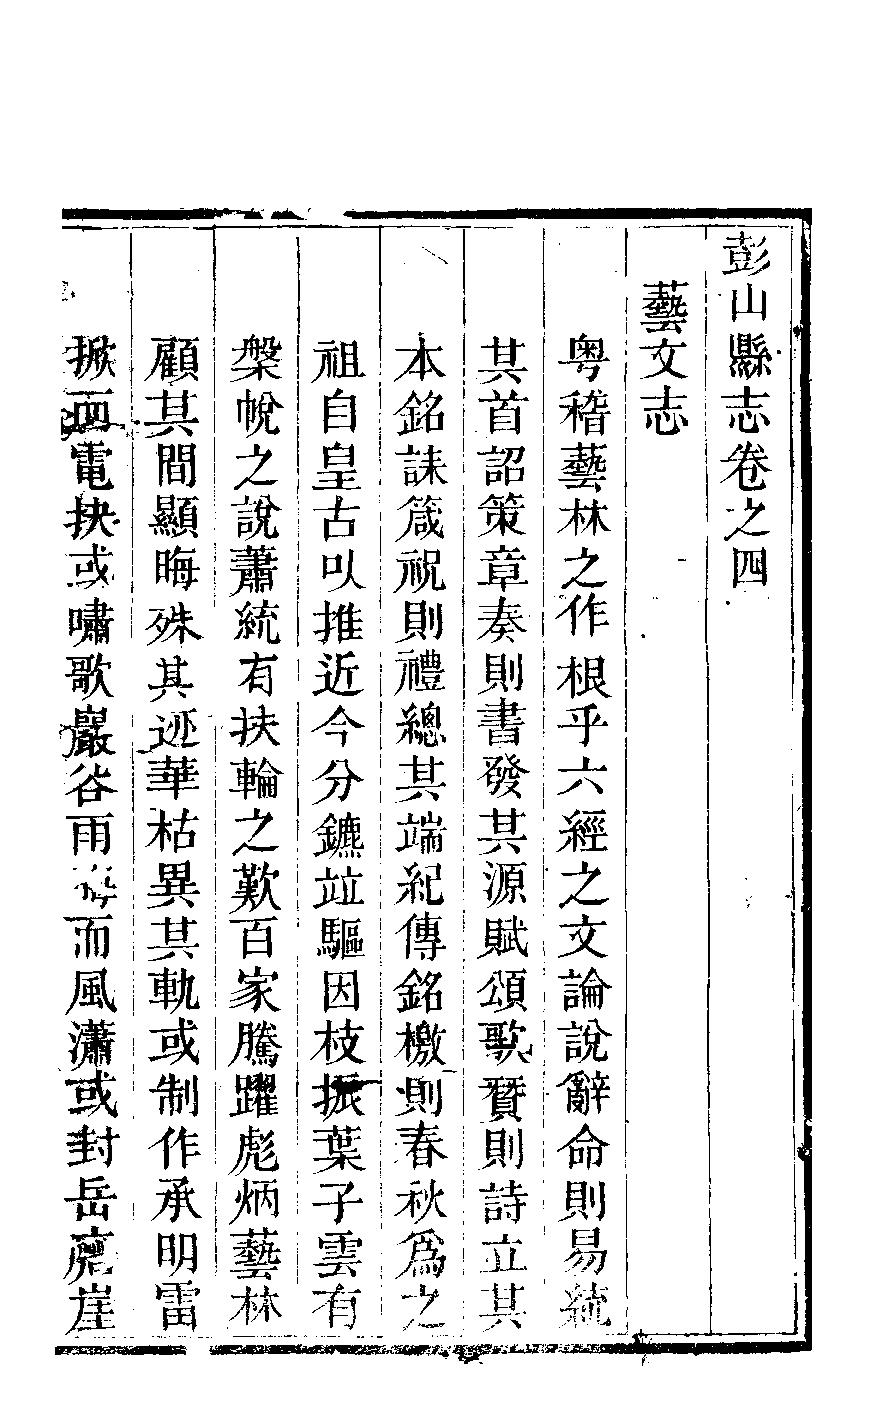 彭山縣志卷之四
藝文志
粤稽藝林之作根乎六經之文論說辭命則易統
其首詔策章奏則書發其源賦頌歌贊則詩立其
本銘誄箴祝則禮總其端紀傳銘檄則春秋爲之
祖自皇古以推近今分鑣竝驅因枝振葉子雲有
槃帨之說蕭統有扶輪之歎百家騰躍彪炳藝林
顧其間顯晦殊其迹華枯異其軌或制作承明雷
掀而電抉或嘯歌巖谷雨而風瀟或封岳磨崖